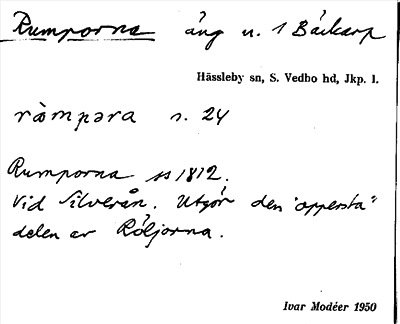 Rumporna äng u. 1 Bäckarp
Hässleby sn, S. Vedbo hd, Jkp. l.
ròmpəra s. 24
Rumporna ss 1812.
Vid Silverån. Utgör den "oppersta"
delen av Röljorna.
Ivar Modéer 1950